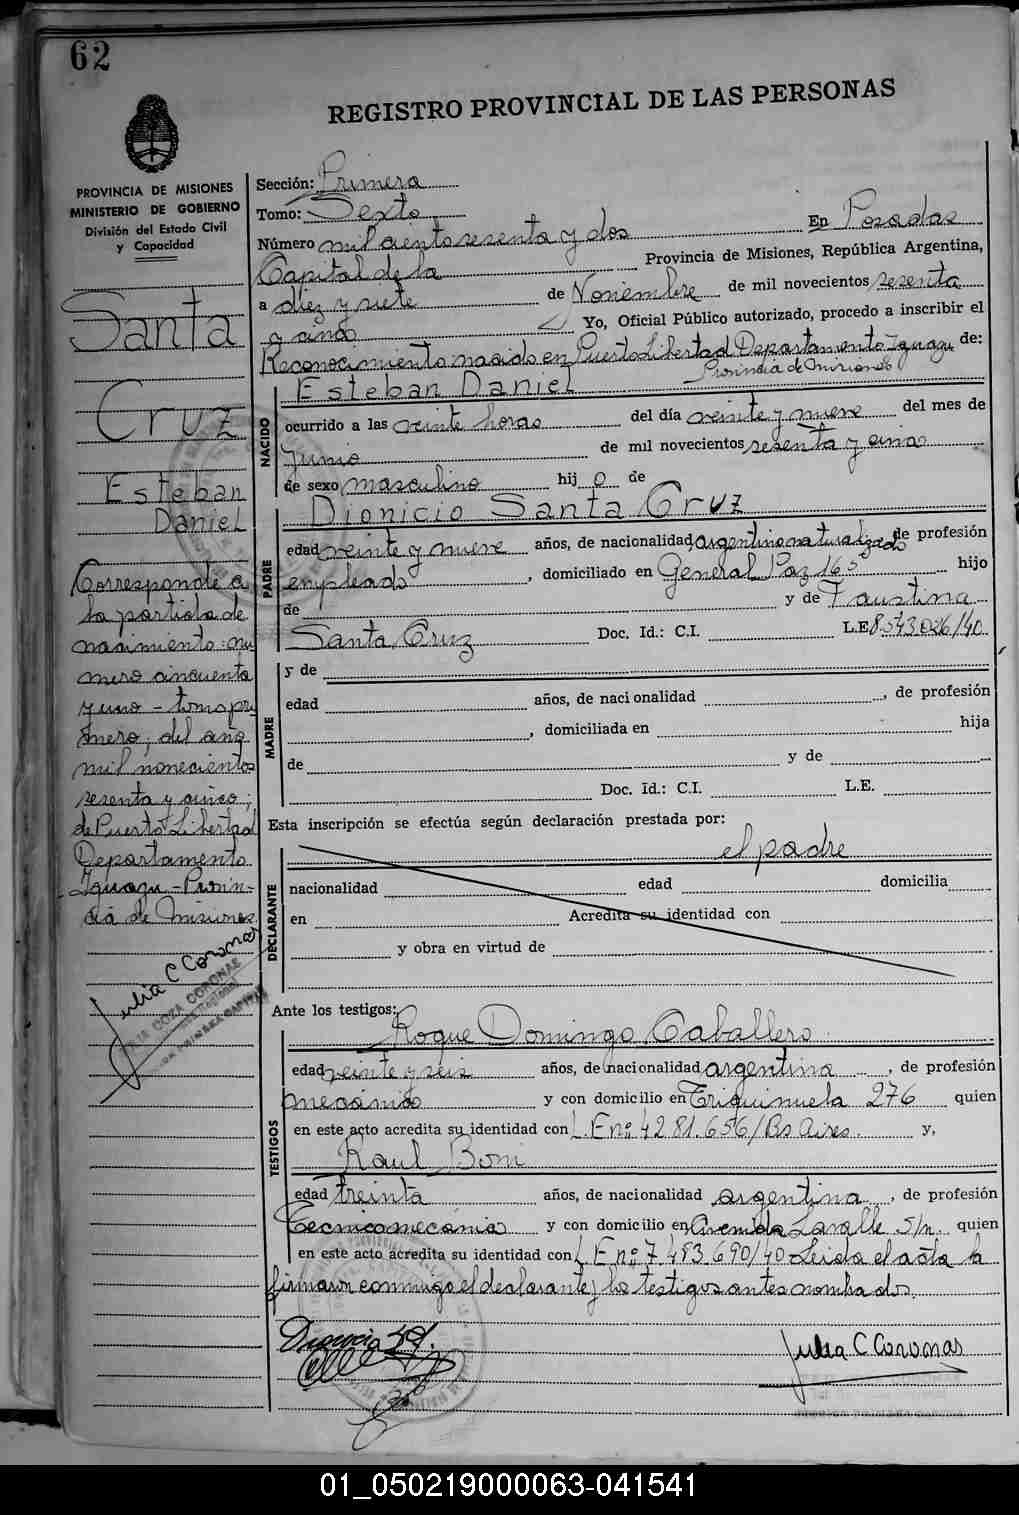 62
REGISTRO PROVINCIAL DE LAS PERSONAS
PROVINCIA DE MISIONES
MINISTERIO DE GOBIERNO
División del Estado Civil
y Capacidad
Santa
Cruz
Esteban
Daniel
Corresponde a
la partida de
nacimiento nú
mero cincuenta
y uno - tomo pri
mero, del año
mil novecientos
sesenta y cinco;
de Puerto Libertad
Departamento
Iguazu - Provin-
cia de Misiones
Julia C Coronas
Sección: Primera
Tomo: Sexto
Número mil ciento sesenta y dos En Posadas
Capital de la Provincia de Misiones, República Argentina,
a diez y siete de Noviembre de mil novecientos sesenta
y cinco Yo, Oficial Público autorizado, procedo a inscribir el
Reconocimiento nacido en Puerto Libertad Departamento Iguazu de:
Provincia de Misiones
NACIDO
Esteban Daniel
ocurrido a las veinte horas del día veinte y nueve del mes de
Junio de mil novecientos sesenta y cinco
de sexo masculino hijo de
PADRE
Dionicio Santa Cruz
edad veinte y nueve años, de nacionalidad argentino naturalizado de profesión
empleado, domiciliado en General Paz 165 hijo
de y de Faustina
Santa Cruz Doc. Id.: C.I. L.E. 8.543.026/40
MADRE
y de
edad años, de nacionalidad, de profesión
, domiciliada en hija
de y de
Doc. Id.: C.I. L.E.
Esta inscripción se efectúa según declaración prestada por:
DECLARANTE
el padre
nacionalidad edad domicilia
en Acredita su identidad con
y obra en virtud de
Ante los testigos:
TESTIGOS
Roque Domingo Caballero
edad veinte y seis años, de nacionalidad argentina, de profesión
mecanico y con domicilio en 276 quien
en este acto acredita su identidad con L.E nº 4281.656/Bs Aires. y,
Raul Boni
edad treinta años, de nacionalidad argentina, de profesión
Tecnico mecánico y con domicilio en Avenida Lavalle S/n. quien
en este acto acredita su identidad con L.E nº 7.483.690/40 Leida el acta la
firmaron conmigo el declarante y los testigos antes nombrados.
Julia C Coronas
01_050219000063-041541